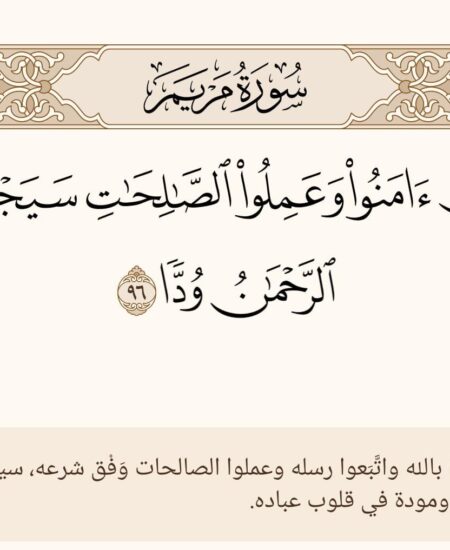 سُورَةُ مَرْيَمَ
ءَامَنُواْ وَعَمِلُواْ ٱلصَّٰلِحَٰتِ
ٱلرَّحْمَٰنُ وُدًّا ٩٦
بالله واتَّبَعوا رسله وعملوا الصالحات وَفْق شرعه،
ومودة في قلوب عباده.